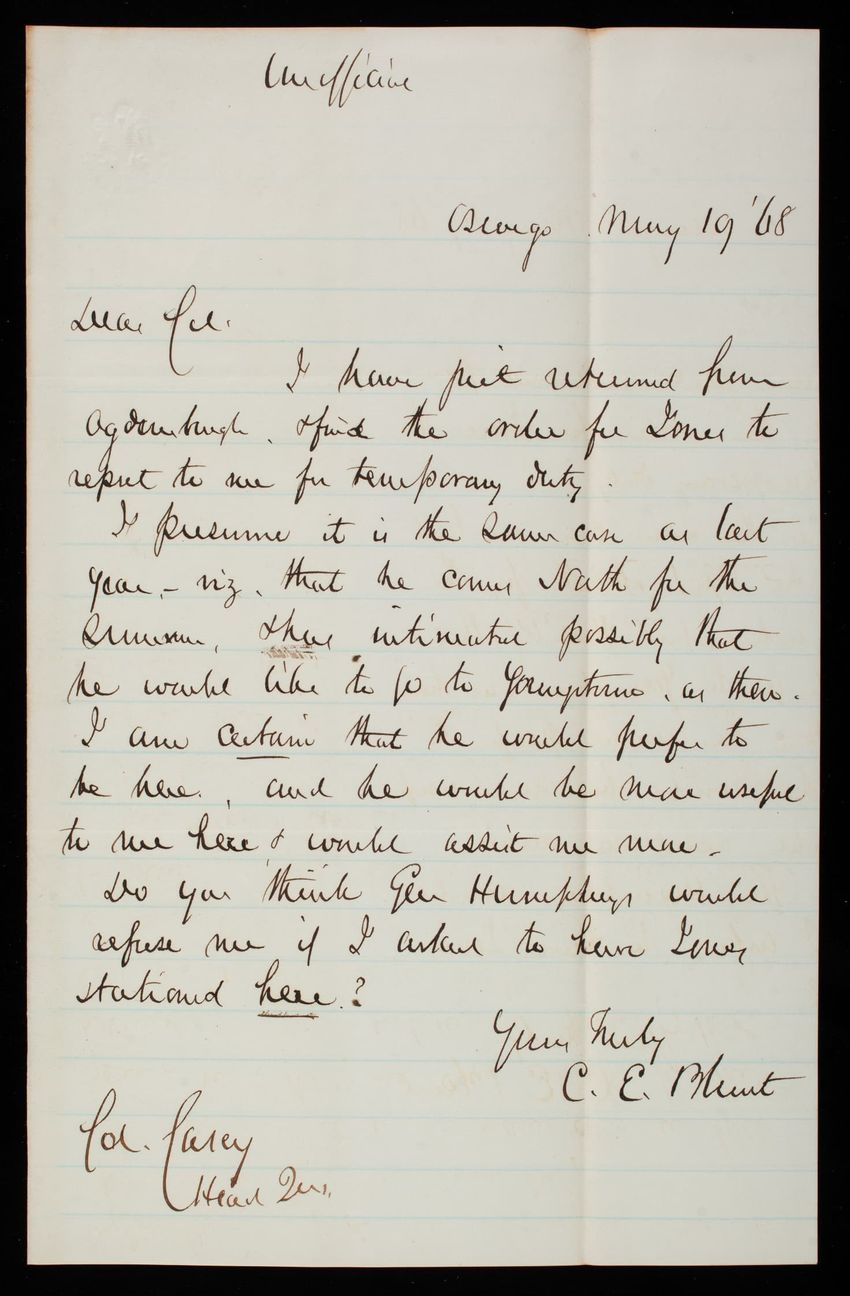 Unofficial
Oswego May 19 '68
Dear Col.
I have just returned from
Ogdensburgh, & find the order for Jones to
report to me for temporary duty.
I presume it is the same case as last
year, - viz, that he comes North for the
summer, & has intimated possibly that
he would like to go to Youngstown, as then.
I am certain that he would prefer to
be here, and he would be more useful
to me here & would assist me more -
Do you think Gen Humphreys would
refuse me if I asked to have Jones
stationed here?
Yours Truly
C. E. Blunt
Col. Casey
Head Qrs.